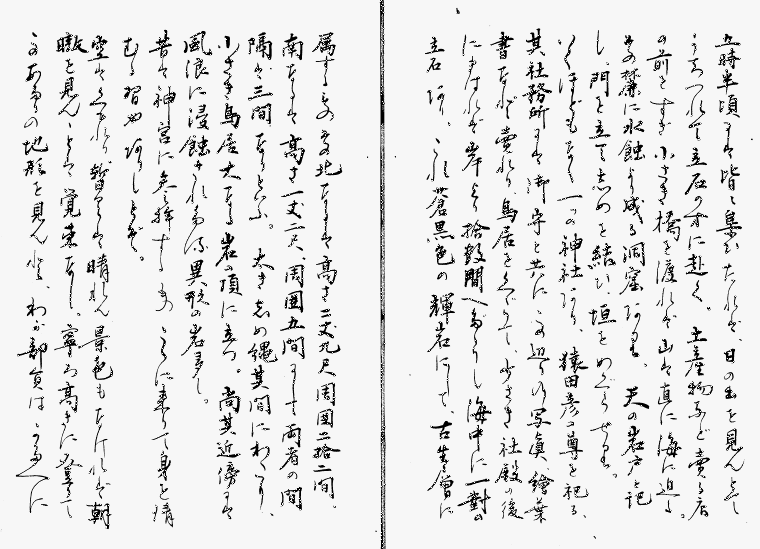 五時半頃には皆々集ひたれば、日の出を見んとて
うちつれて立石の方に赴く。土産物など売る店
の前をすぎ小さき橋を渡れば山は直に海に迫る。
その麓に水蝕より成る洞窟あり、天の岩戸と記
し、門を立てしめを結ひ、垣をめぐらせり。
いくほどもなく一つの神社あり、猿田彦の尊を祀る、
其社務所には御守と共にこの辺りの写真、絵葉
書など売れり、鳥居を出でて、少さき社殿の後
にまはれば岸より拾数間へだゝりし海中に一対の
立石あり。これ蒼黒色の輝岩にして、古生層に
属するもの、北なるは高さ二丈九尺周囲二拾二間。
南なるは高さ一丈二尺、周囲五間にして両者の間
隔は三間なりといふ。太きしめ縄其間にわたり、
小さき鳥居大なる岩の頂に立つ。尚其近傍には
風浪に浸蝕されたる異形の岩多し。
昔は神宮に参拝するもの、こゝに来りて身を清
むる習やありしとぞ。
空は曇れり、暫くは晴れん景色もなければ朝
暾を見んことは覚束なし。寧ろ高きに登りて
このあたりの地形を見んと、わが部員は